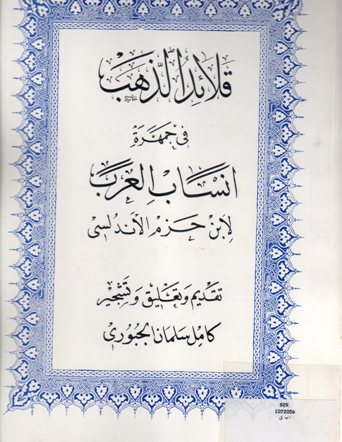 قلائد الذهب
في جمهرة
انساب العرب
لابن حزم الاندلسي
تقديم وتعليق وتشجير
كامل سلمان الجبوري
929,
1072056